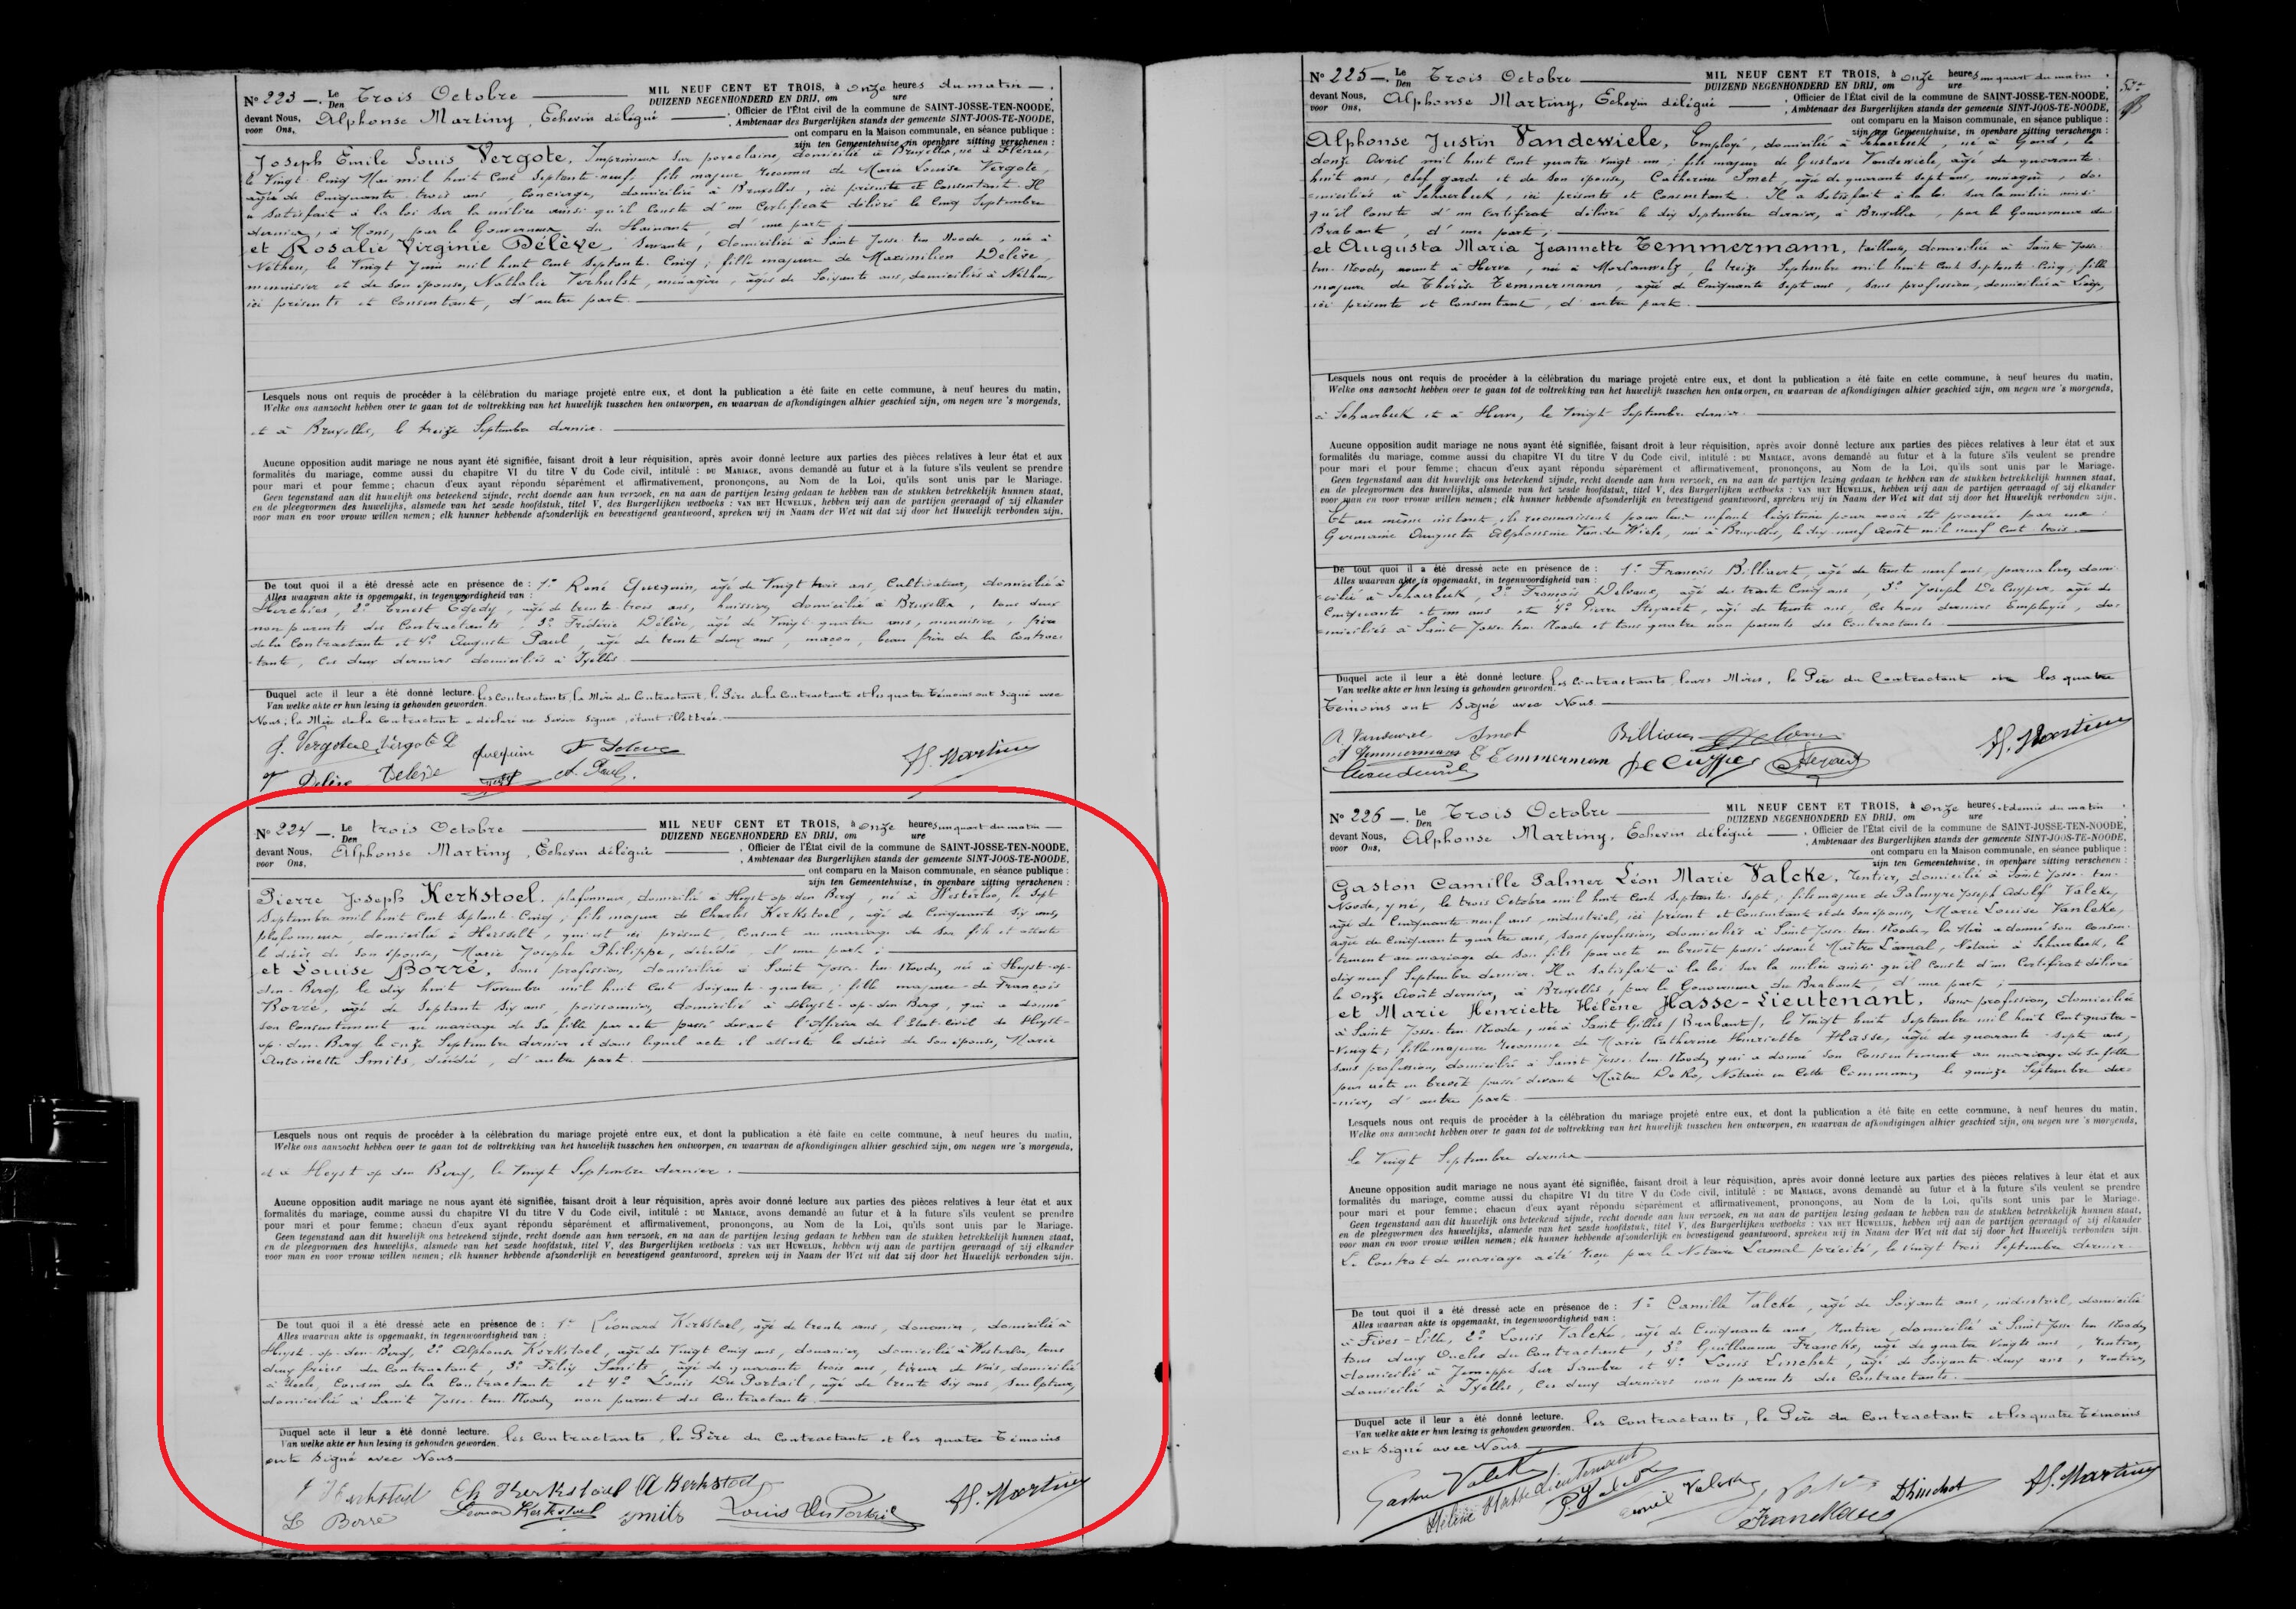 N° 223 —. Le Den Trois Octobre MIL NEUF CENT ET TROIS, à onze heures du matin —.
DUIZEND NEGENHONDERD EN DRIJ, om ure
devant Nous, voor Ons, Alphonse Martiny, Echevin délégué , Officier de l'État civil de la commune de SAINT-JOSSE-TEN-NOODE,
, Ambtenaar des Burgerlijken stands der gemeente SINT-JOOS-TE-NOODE,
ont comparu en la Maison communale, en séance publique :
zijn ten Gemeentehuize, in openbare zitting verschenen :
Joseph Emile Louis Vergote, Imprimeur sur porcelaine, domicilié à Bruxelles, né à
le Vingt Cinq Mai mil huit Cent Septante-neuf, fils majeur reconnu de Marie Louise Vergote,
âgée de Cinquante-trois ans, Concierge, domiciliée à Bruxelles, ici présente et Consentant. Il
a satisfait à la loi sur la milice ainsi qu'il Conste d'un Certificat délivré le Cinq Septembre
dernier, à Mons, par le Gouverneur du Hainaut, d'une part ;
et Rosalie Virginie Délève, Servante, domiciliée à Saint Josse-ten-Noode, née à
Nethen, le Vingt Juin mil huit Cent Septante-Cinq ; fille majeure de Maximilien Delève,
menuisier et de son épouse, Nathalie Verhulst, ménagère, âgés de Soixante ans, domiciliés à Nethen,
ici présents et Consentant, d'autre part.
Lesquels nous ont requis de procéder à la célébration du mariage projeté entre eux, et dont la publication a été faite en cette commune, à neuf heures du matin,
Welke ons aanzocht hebben over te gaan tot de voltrekking van het huwelijk tusschen hen ontworpen, en waarvan de afkondigingen alhier geschied zijn, om negen ure 's morgends,
et à Bruxelles, le treize Septembre dernier.
Aucune opposition audit mariage ne nous ayant été signifiée, faisant droit à leur réquisition, après avoir donné lecture aux parties des pièces relatives à leur état et aux
formalités du mariage, comme aussi du chapitre VI du titre V du Code civil, intitulé : DU MARIAGE, avons demandé au futur et à la future s'ils veulent se prendre
pour mari et pour femme ; chacun d'eux ayant répondu séparément et affirmativement, prononçons, au Nom de la Loi, qu'ils sont unis par le Mariage.
Geen tegenstand aan dit huwelijk ons beteekend zijnde, recht doende aan hun verzoek, en na aan de partijen lezing gedaan te hebben van de stukken betrekkelijk hunnen staat,
en de pleegvormen des huwelijks, alsmede van het zesde hoofdstuk, titel V, des Burgerlijken wetboeks : VAN HET HUWELIJK, hebben wij aan de partijen gevraagd of zij elkander
voor man en voor vrouw willen nemen ; elk hunner hebbende afzonderlijk en bevestigend geantwoord, spreken wij in Naam der Wet uit dat zij door het Huwelijk verbonden zijn.
De tout quoi il a été dressé acte en présence de : 1° René Quequin, âgé de Vingt trois ans, Cultivateur, domicilié à
Alles waarvan akte is opgemaakt, in tegenwoordigheid van :
Herchies, 2° Ernest, âgé de trente-trois ans, huissier, domicilié à Bruxelles, tous deux
non parents des Contractants, 3° Frédéric Délève, âgé de Vingt-quatre ans, menuisier, frère
de la Contractante et 4° Auguste Paul, âgé de trente deux ans, maçon, beau frère de la Contrac-
tante, Ces deux derniers domiciliés à Ixelles.
Duquel acte il leur a été donné lecture. Les Contractants, la Mère du Contractant, le Père de la Contractante et les quatre témoins ont Signé avec
Van welke akte er hun lezing is gehouden geworden.
Nous ; la Mère de la Contractante a déclaré ne Savoir Signer, étant illettrée.
J. Vergote L. Vergote Quequin F Deleve
Delève Delève A. Paul. A. Martiny
N° 224 —. Le Den trois Octobre MIL NEUF CENT ET TROIS, à onze heures un quart du matin —
DUIZEND NEGENHONDERD EN DRIJ, om ure
devant Nous, voor Ons, Alphonse Martiny, Echevin délégué , Officier de l'État civil de la commune de SAINT-JOSSE-TEN-NOODE,
, Ambtenaar des Burgerlijken stands der gemeente SINT-JOOS-TE-NOODE,
ont comparu en la Maison communale, en séance publique :
zijn ten Gemeentehuize, in openbare zitting verschenen :
Pierre Joseph Kerkstoel, plafonneur, domicilié à Heyst op den Berg, né à Westerloo, le Sept
Septembre mil huit Cent Septante-Cinq ; fils majeur de Charles Kerkstoel, âgé de Cinquante Six ans,
plafonneur, domicilié à Hersselt, qui est ici présent, Consent au mariage de son fils et atteste
le décès de Son épouse, Marie Josephe Philippe, décédée, d'une part ;
et Louise Borré, Sans profession, domiciliée à Saint Josse-ten-Noode, née à Heyst-op-
den-Berg, le dix huit Novembre mil huit Cent Soixante-quatre ; fille majeure de François
Borré, âgé de Septante Six ans, poissonnier, domicilié à Heyst-op-den-Berg, qui a donné
son Consentement au mariage de Sa fille par acte passé devant l'Officier de l'Etat-Civil de Heyst-
op-den-Berg le onze Septembre dernier et dans lequel acte il atteste le décès de Son épouse, Marie
Antoinette Smits, décédée, d'autre part.
Lesquels nous ont requis de procéder à la célébration du mariage projeté entre eux, et dont la publication a été faite en cette commune, à neuf heures du matin,
Welke ons aanzocht hebben over te gaan tot de voltrekking van het huwelijk tusschen hen ontworpen, en waarvan de afkondigingen alhier geschied zijn, om negen ure 's morgends,
et à Heyst op den Berg, le Vingt Septembre dernier.
Aucune opposition audit mariage ne nous ayant été signifiée, faisant droit à leur réquisition, après avoir donné lecture aux parties des pièces relatives à leur état et aux
formalités du mariage, comme aussi du chapitre VI du titre V du Code civil, intitulé : DU MARIAGE, avons demandé au futur et à la future s'ils veulent se prendre
pour mari et pour femme ; chacun d'eux ayant répondu séparément et affirmativement, prononçons, au Nom de la Loi, qu'ils sont unis par le Mariage.
Geen tegenstand aan dit huwelijk ons beteekend zijnde, recht doende aan hun verzoek, en na aan de partijen lezing gedaan te hebben van de stukken betrekkelijk hunnen staat,
en de pleegvormen des huwelijks, alsmede van het zesde hoofdstuk, titel V, des Burgerlijken wetboeks : VAN HET HUWELIJK, hebben wij aan de partijen gevraagd of zij elkander
voor man en voor vrouw willen nemen ; elk hunner hebbende afzonderlijk en bevestigend geantwoord, spreken wij in Naam der Wet uit dat zij door het Huwelijk verbonden zijn.
De tout quoi il a été dressé acte en présence de : 1° Léonard Kerkstoel, âgé de trente ans, douanier, domicilié à
Alles waarvan akte is opgemaakt, in tegenwoordigheid van :
Heyst-op-den-Berg, 2° Alphonse Kerkstoel, âgé de Vingt Cinq ans, douanier, domicilié à Westerloo, tous
deux frères du Contractant, 3° Félix Smits, âgé de quarante trois ans, tireur de Vins, domicilié
à Uccle, Cousin de la Contractante et 4° Louis Du Portail, âgé de trente Six ans, Sculpteur,
domicilié à Saint Josse-ten-Noode, non parent des Contractants.
Duquel acte il leur a été donné lecture. Les Contractants, le Père du Contractant et les quatre témoins
Van welke akte er hun lezing is gehouden geworden.
ont Signé avec Nous.
P Kerkstoel Ch Kerkstoel A Kerkstoel
L Borré Leonard Kerkstoel Smits Louis Du Portail A. Martiny
N° 225 —. Le Den Trois Octobre MIL NEUF CENT ET TROIS, à onze heures un quart du matin.
DUIZEND NEGENHONDERD EN DRIJ, om ure
devant Nous, voor Ons, Alphonse Martiny, Echevin délégué , Officier de l'État civil de la commune de SAINT-JOSSE-TEN-NOODE,
, Ambtenaar des Burgerlijken stands der gemeente SINT-JOOS-TE-NOODE,
ont comparu en la Maison communale, en séance publique :
zijn ten Gemeentehuize, in openbare zitting verschenen :
Alphonse Justin Vandewiele, Employé, domicilié à Schaerbeek, né à Gand, le
douze Avril mil huit Cent quatre-Vingt-un ; fils majeur de Gustave Vandewiele, âgé de quarante-
huit ans, chef garde et de son épouse, Catherine Smet, âgée de quarante Sept ans, ménagère, do-
miciliés à Schaerbeek, ici présents et Consentant. Il a Satisfait à la loi sur la milice ainsi
qu'il Conste d'un Certificat délivré le dix Septembre dernier, à Bruxelles, par le Gouverneur du
Brabant, d'une part ;
et Augusta Maria Jeannette Temmermann, tailleuse, domiciliée à Saint Josse-
ten-Noode, avant à Herve, née à Morlanwelz, le treize Septembre mil huit Cent Septante-Cinq, fille
majeure de Thérèse Temmermann, âgée de Cinquante Sept ans, Sans profession, domiciliée à Liège,
ici présente et Consentant, d'autre part.
Lesquels nous ont requis de procéder à la célébration du mariage projeté entre eux, et dont la publication a été faite en cette commune, à neuf heures du matin,
Welke ons aanzocht hebben over te gaan tot de voltrekking van het huwelijk tusschen hen ontworpen, en waarvan de afkondigingen alhier geschied zijn, om negen ure 's morgends,
à Schaerbeek et à Herve, le Vingt Septembre dernier.
Aucune opposition audit mariage ne nous ayant été signifiée, faisant droit à leur réquisition, après avoir donné lecture aux parties des pièces relatives à leur état et aux
formalités du mariage, comme aussi du chapitre VI du titre V du Code civil, intitulé : DU MARIAGE, avons demandé au futur et à la future s'ils veulent se prendre
pour mari et pour femme ; chacun d'eux ayant répondu séparément et affirmativement, prononçons, au Nom de la Loi, qu'ils sont unis par le Mariage.
Geen tegenstand aan dit huwelijk ons beteekend zijnde, recht doende aan hun verzoek, en na aan de partijen lezing gedaan te hebben van de stukken betrekkelijk hunnen staat,
en de pleegvormen des huwelijks, alsmede van het zesde hoofdstuk, titel V, des Burgerlijken wetboeks : VAN HET HUWELIJK, hebben wij aan de partijen gevraagd of zij elkander
voor man en voor vrouw willen nemen ; elk hunner hebbende afzonderlijk en bevestigend geantwoord, spreken wij in Naam der Wet uit dat zij door het Huwelijk verbonden zijn.
Et au même instant, ils reconnaissent pour leur enfant légitime pour avoir été procréée par eux :
Germaine Augusta Alphonsine Vande Wiele, née à Bruxelles, le dix-neuf Août mil neuf Cent trois.
De tout quoi il a été dressé acte en présence de : 1° François Billiaert, âgé de trente neuf ans, journalier, domi-
Alles waarvan akte is opgemaakt, in tegenwoordigheid van :
cilié à Schaerbeek, 2° François Delvaux, âgé de trente Cinq ans, 3° Joseph De Cuyper, âgé de
Cinquante et un ans, et 4° Pierre Steyaert, âgé de trente ans, Ces trois derniers Employés, do-
miciliés à Saint Josse-ten-Noode et tous quatre non parents des Contractants.
Duquel acte il leur a été donné lecture. Les Contractants, leurs Mères, le Père du Contractant et les quatre
Van welke akte er hun lezing is gehouden geworden.
témoins ont Signé avec Nous.
Smet
A Temmermann T Temmerman De Cuyper A. Martiny
N° 226 —. Le Den Trois Octobre MIL NEUF CENT ET TROIS, à onze heures et demie du matin.
DUIZEND NEGENHONDERD EN DRIJ, om ure
devant Nous, voor Ons, Alphonse Martiny, Echevin délégué , Officier de l'État civil de la commune de SAINT-JOSSE-TEN-NOODE,
, Ambtenaar des Burgerlijken stands der gemeente SINT-JOOS-TE-NOODE,
ont comparu en la Maison communale, en séance publique :
zijn ten Gemeentehuize, in openbare zitting verschenen :
Gaston Camille Palmer Léon Marie Valcke, rentier, domicilié à Saint Josse-ten-
Noode, y né, le trois Octobre mil huit Cent Septante-Sept ; fils majeur de Palmyre Joseph Adolf Valcke,
âgé de Cinquante-neuf ans, industriel, ici présent et Consentant et de son épouse, Marie Louise Vanleke,
âgée de Cinquante quatre ans, Sans profession, domiciliés à Saint Josse-ten-Noode, la Mère a donné son Consen-
tement au mariage de Son fils par acte en brevet passé devant Maître Lamal, Notaire à Schaerbeek, le
dix neuf Septembre dernier. Il a Satisfait à la loi sur la milice ainsi qu'il Conste d'un Certificat délivré
le onze Août dernier, à Bruxelles, par le Gouverneur du Brabant, d'une part ;
et Marie Henriette Hélène Hasse-Lieutenant, Sans profession, domiciliée
à Saint Josse-ten-Noode, née à Saint Gilles (Brabant), le Vingt huit Septembre mil huit Cent quatre-
Vingt ; fille majeure reconnue de Marie Catherine Henriette Hasse, âgée de quarante-Sept ans,
Sans profession, domiciliée à Saint Josse-ten-Noode, qui a donné Son Consentement au mariage de Sa fille
par acte en brevet passé devant Maître De Ro, Notaire en Cette Commune, le quinze Septembre der-
nier, d'autre part.
Lesquels nous ont requis de procéder à la célébration du mariage projeté entre eux, et dont la publication a été faite en cette commune, à neuf heures du matin,
Welke ons aanzocht hebben over te gaan tot de voltrekking van het huwelijk tusschen hen ontworpen, en waarvan de afkondigingen alhier geschied zijn, om negen ure 's morgends,
le Vingt Septembre dernier
Aucune opposition audit mariage ne nous ayant été signifiée, faisant droit à leur réquisition, après avoir donné lecture aux parties des pièces relatives à leur état et aux
formalités du mariage, comme aussi du chapitre VI du titre V du Code civil, intitulé : DU MARIAGE, avons demandé au futur et à la future s'ils veulent se prendre
pour mari et pour femme ; chacun d'eux ayant répondu séparément et affirmativement, prononçons, au Nom de la Loi, qu'ils sont unis par le Mariage.
Geen tegenstand aan dit huwelijk ons beteekend zijnde, recht doende aan hun verzoek, en na aan de partijen lezing gedaan te hebben van de stukken betrekkelijk hunnen staat,
en de pleegvormen des huwelijks, alsmede van het zesde hoofdstuk, titel V, des Burgerlijken wetboeks : VAN HET HUWELIJK, hebben wij aan de partijen gevraagd of zij elkander
voor man en voor vrouw willen nemen ; elk hunner hebbende afzonderlijk en bevestigend geantwoord, spreken wij in Naam der Wet uit dat zij door het Huwelijk verbonden zijn.
Le Contrat de mariage a été reçu par le Notaire Lamal précité, le Vingt trois Septembre dernier.
De tout quoi il a été dressé acte en présence de : 1° Camille Valcke, âgé de Soixante ans, industriel, domicilié
Alles waarvan akte is opgemaakt, in tegenwoordigheid van :
à Fives-Lille, 2° Louis Valcke, âgé de Cinquante ans, rentier, domicilié à Saint Josse-ten-Noode,
tous deux Oncles du Contractant, 3° Guillaume Franckx, âgé de quatre Vingts ans, rentier,
domicilié à Jemeppe Sur Sambre et 4° Louis Linchet, âgé de Soixante-deux ans, rentier,
domicilié à Ixelles, Ces deux derniers non parents des Contractants.
Duquel acte il leur a été donné lecture. Les Contractants, le Père du Contractant et les quatre témoins
Van welke akte er hun lezing is gehouden geworden.
ont Signé avec Nous
Gaston Valcke Hélène Hasse Lieutenant P. Valcke Valcke L Linchet A. Martiny